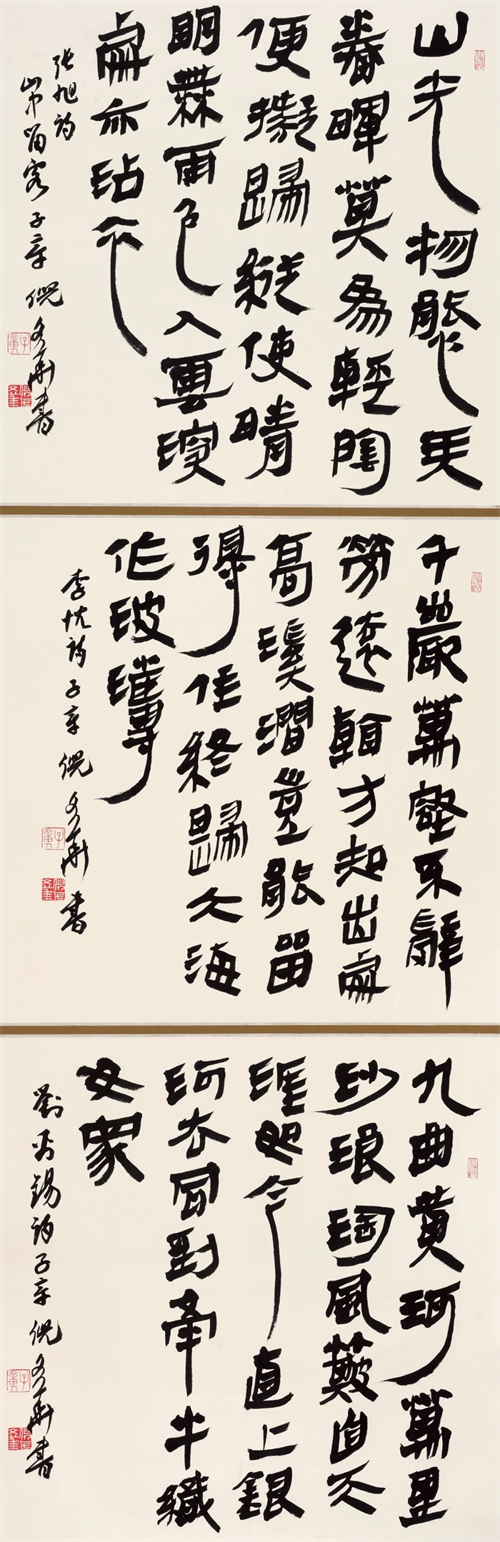 山光物態弄
春暉莫為輕陰
便擬歸縱使晴
明無雨色入雲深
處亦沾衣
張旭詩
山中留客 子辛 倪文華書
千巖萬壑不辭
勞遠看方知出處
高溪澗豈能留
得住終歸大海
作波濤
李忱詩 子辛 倪文華書
九曲黃河萬里
沙浪淘風簸自天
涯如今直上銀
河去同到牽牛織
女家
劉禹錫詩 子辛 倪文華書